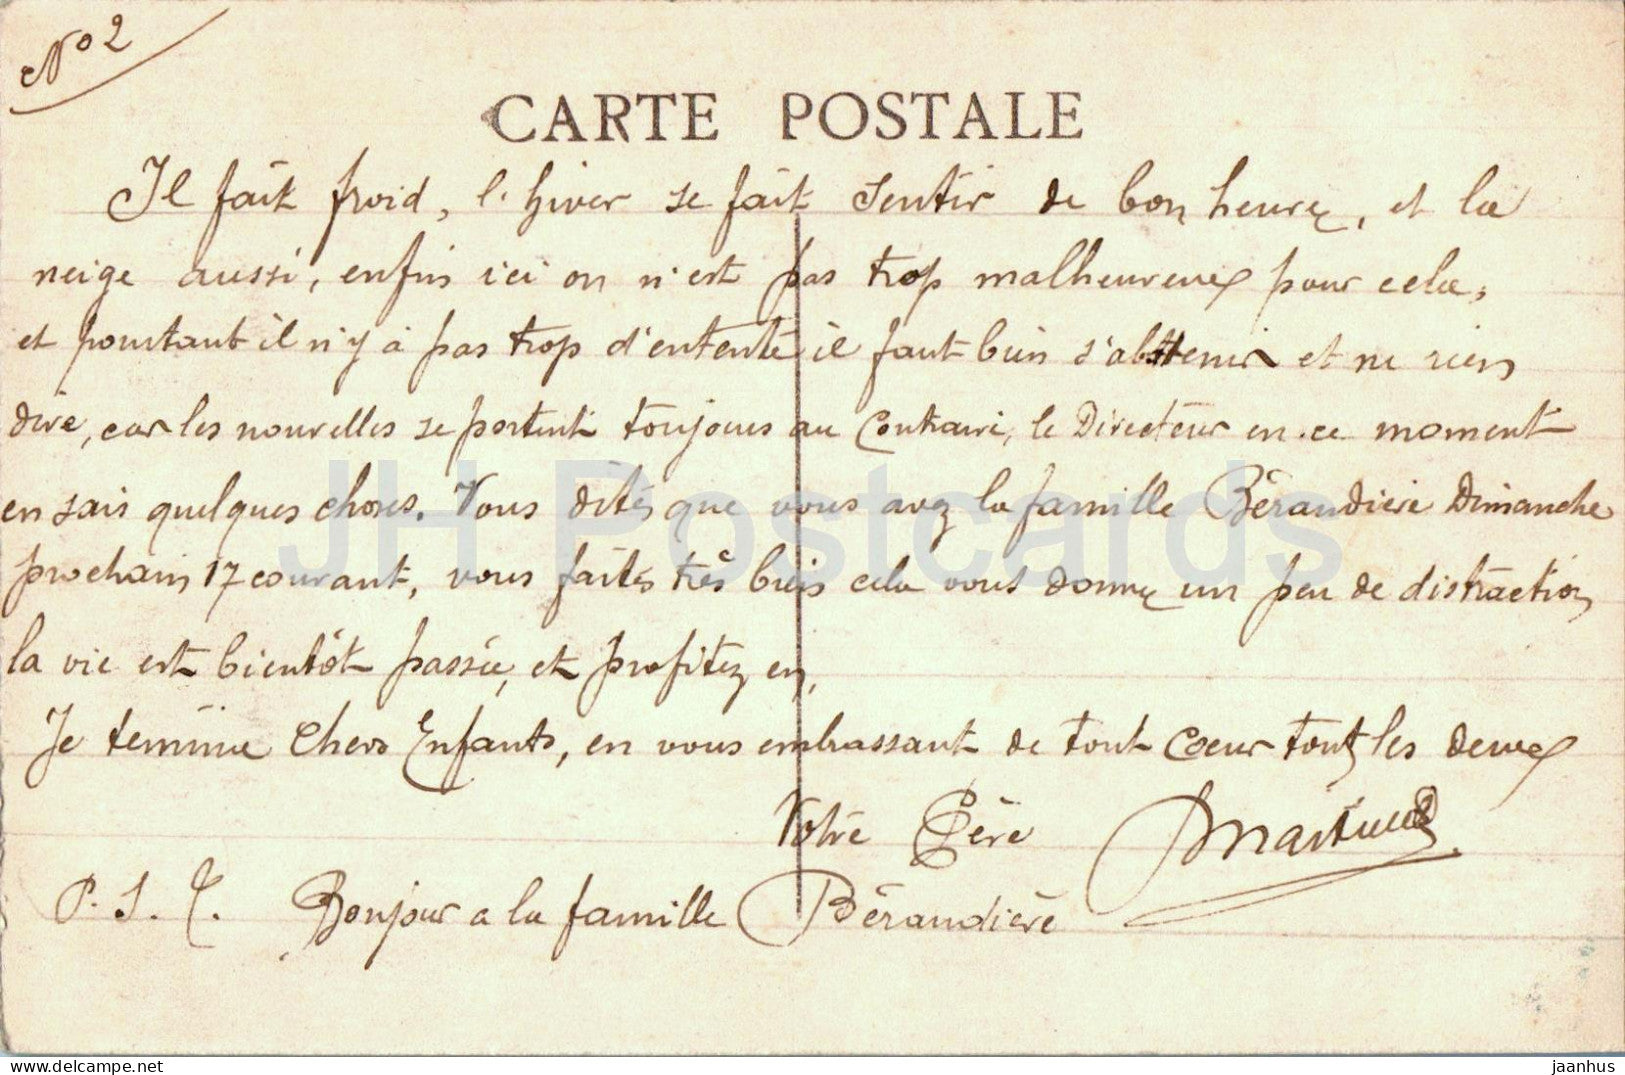 No 2
CARTE POSTALE
Il fait froid, l'hiver se fait sentir de bon heure, et la
neige aussi, enfin ici on n'est pas trop malheureux pour cela,
et pourtant il n'y à pas trop d'entente il faut bien s'abstenir et ne rien
dire, car les nouvelles se portent toujours au Contraire, le Directeur en ce moment
en sais quelques choses. Vous dités que vous avez la famille Bérandière Dimanche
prochain 17 courant, vous faités très bien cela vous donne un peu de distraction
la vie est bientôt passée, et profitez en,
Je termine Chers Enfants, en vous embrassant de tout Coeur tout les deux
Votre Père
P. S. Bonjour a la famille Bérandière
JH Postcards
jaanhus
delcampe.net